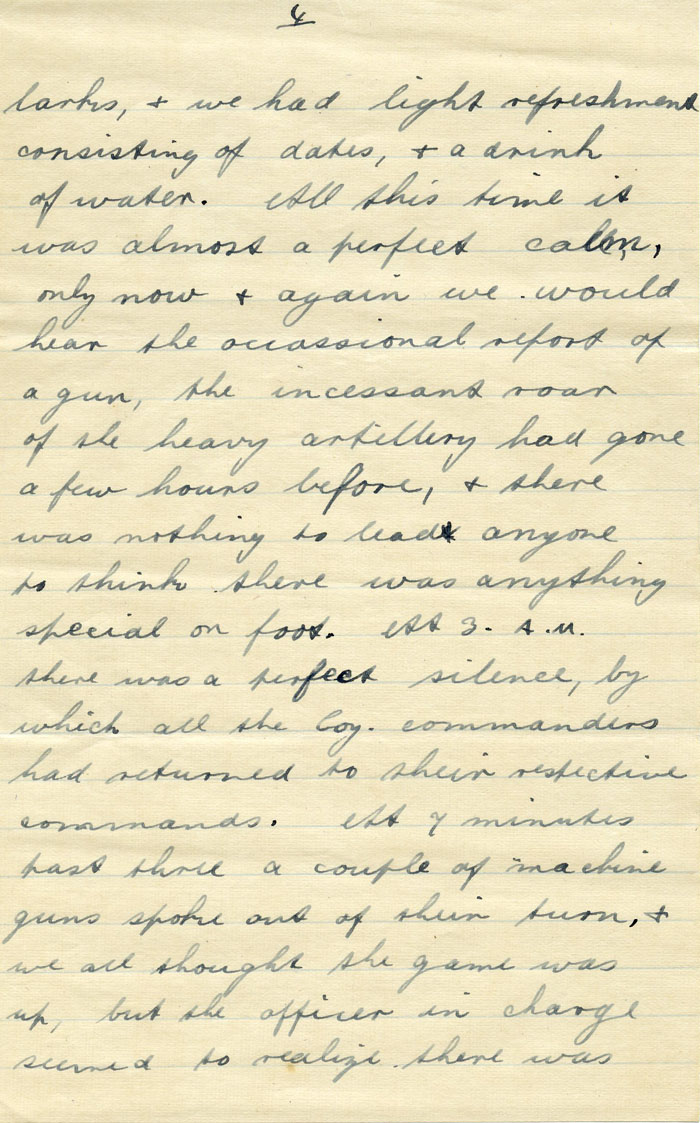 4
larks, + we had light refreshment
consisting of dates, + a drink
of water. All this time it
was almost a perfect calm,
only now + again we would
hear the occassional report of
a gun, the incessant roar
of the heavy artillery had gone
a few hours before, + there
was nothing to lead anyone
to think there was anything
special on foot. At 3. A.M.
there was a perfect silence, by
which all the Coy. commanders
had returned to their respective
commands. At 7 minutes
past three a couple of machine
guns spoke out of their turn, +
we all thought the game was
up, but the officer in charge
seemed to realize there was